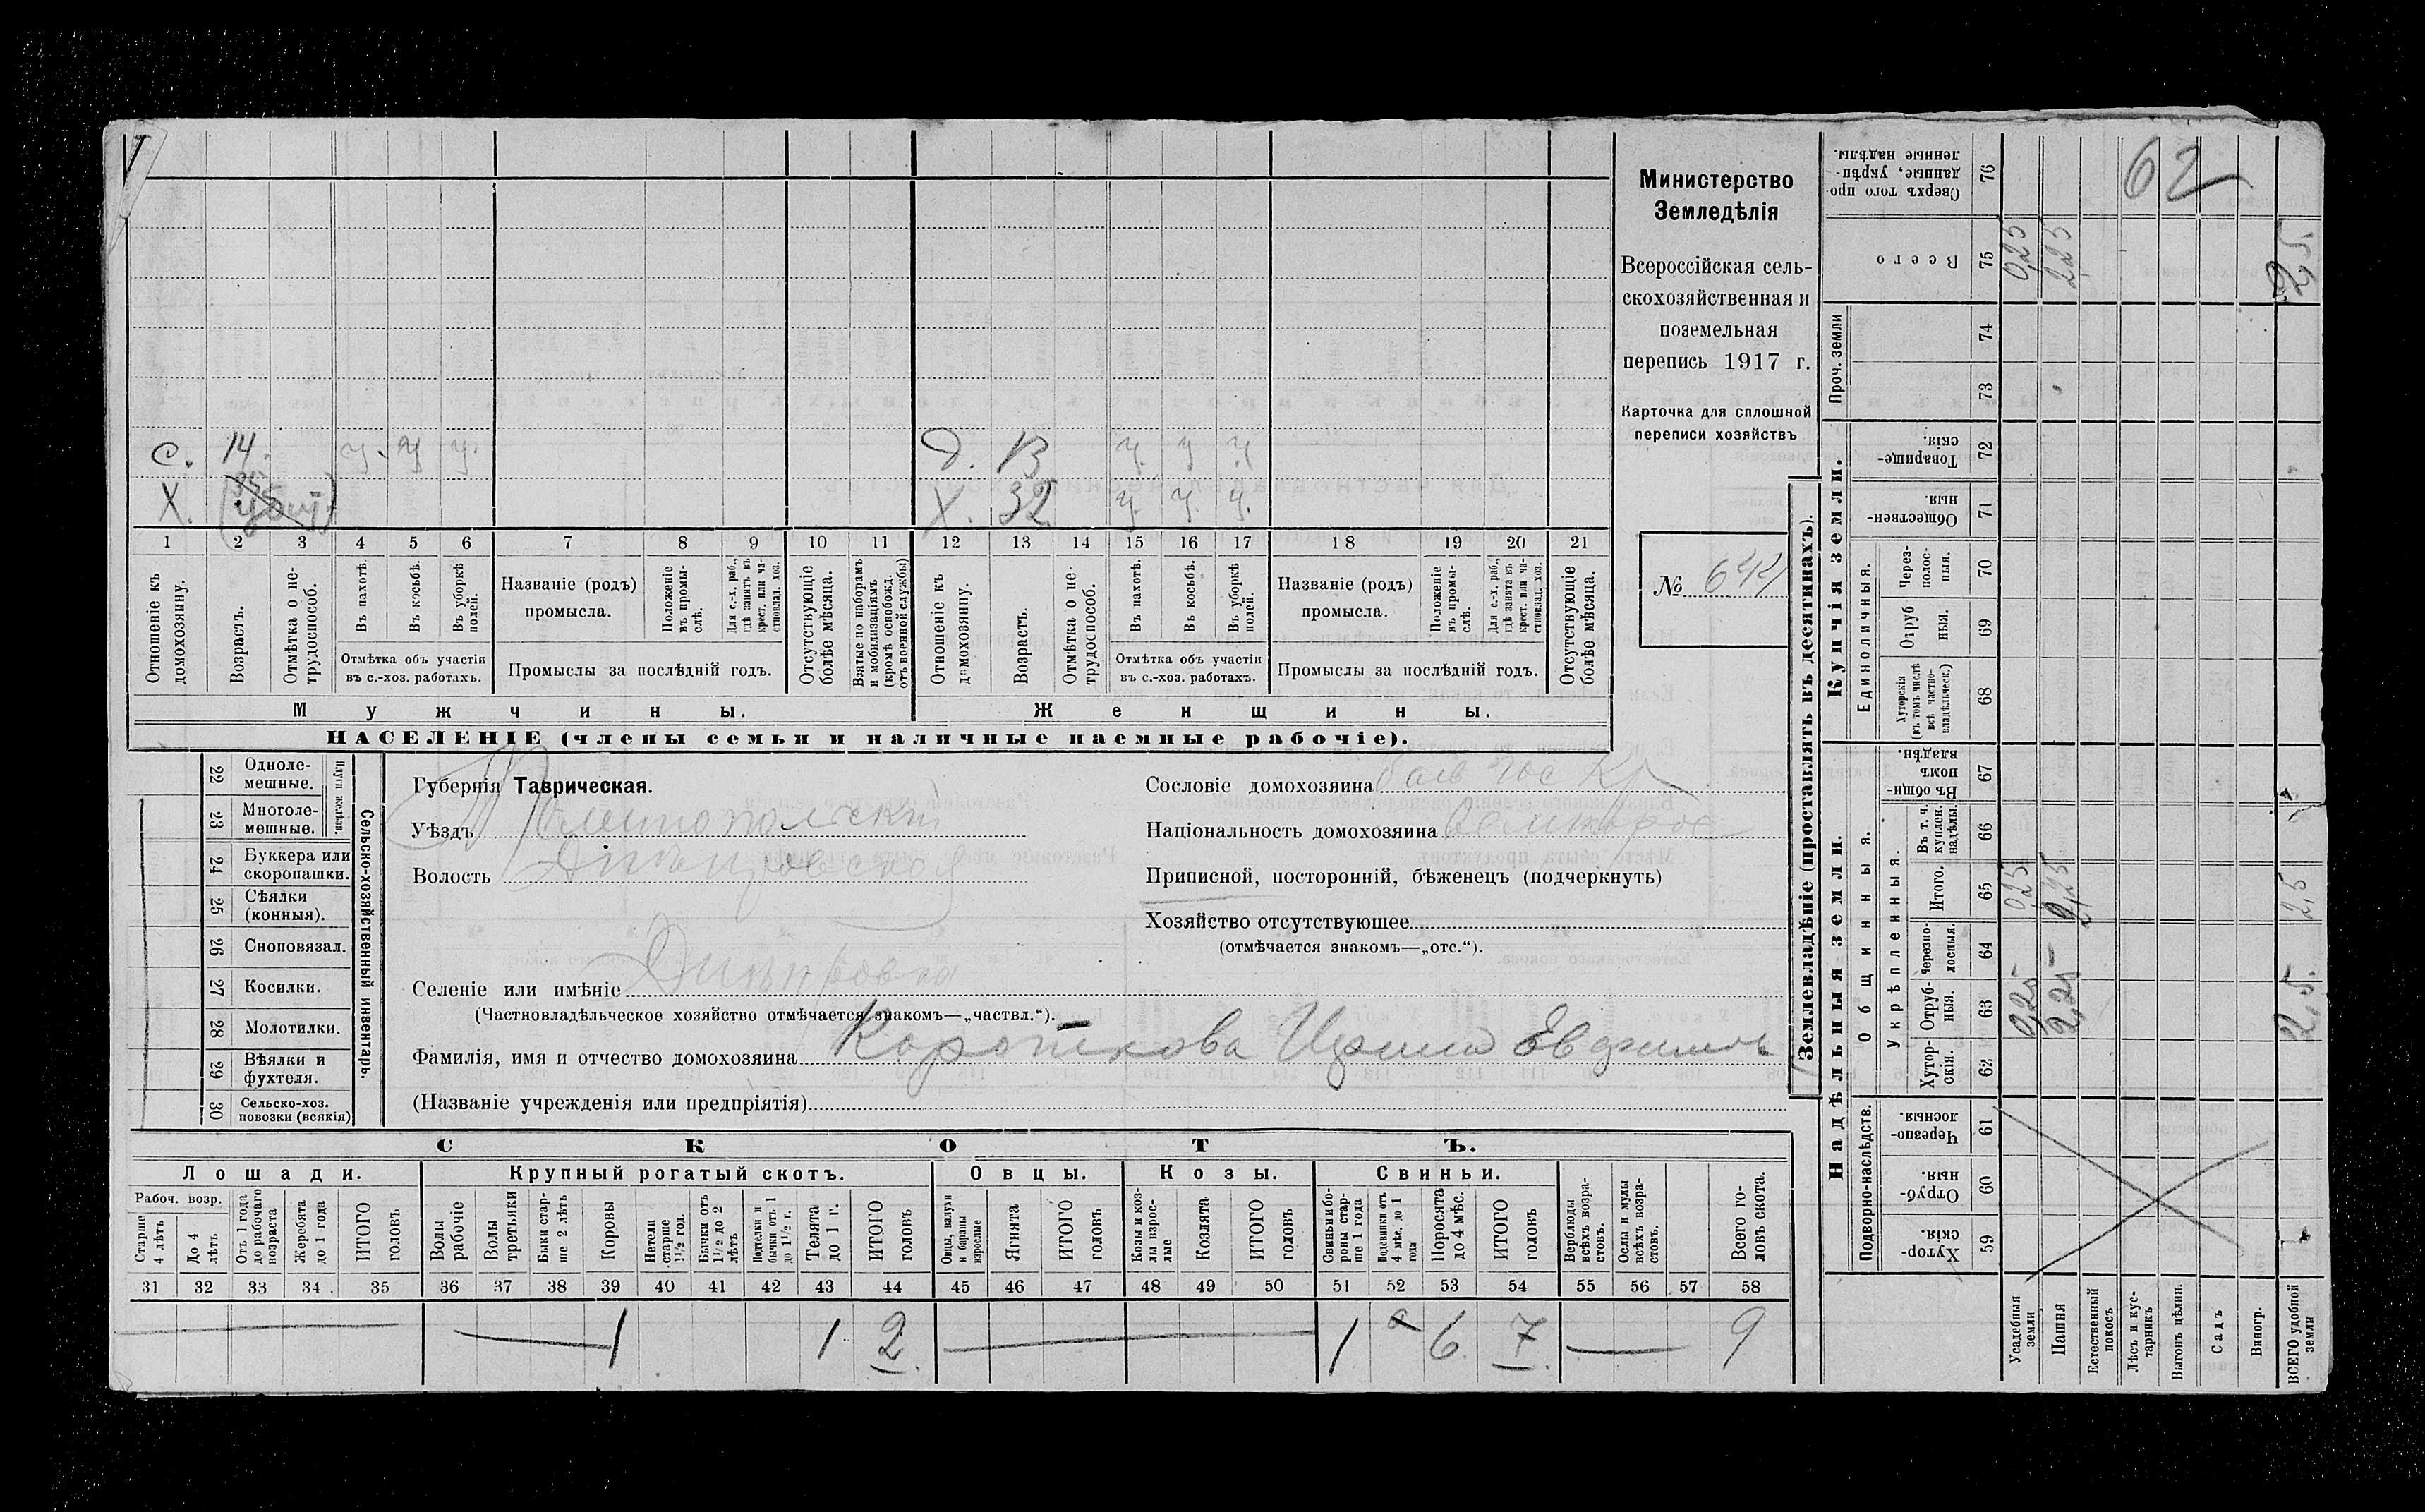 с. 14. у. у у. д. 13 у. у у.
Х. Х. 32 у. у. у.
1 2 3 4 5 6 7 8 9 10 11 12 13 14 15 16 17 18 19 20 21
Отношеніе къ домохозяину.
Возрастъ.
Отмѣтка о нетрудоспособ.
Въ пахотѣ.
Въ косьбѣ.
Въ уборкѣ полей.
Отмѣтка объ участіи
въ с.-хоз. работахъ.
Названіе (родъ)
промысла.
Положеніе въ промыслѣ.
Для с.-х. раб., гдѣ занятъ въ крест. или частновлад. хоз.
Промыслы за послѣдній годъ.
Отсутствующіе болѣе мѣсяца.
Взятые по наборамъ и мобилизаціямъ (кромѣ освобожд. отъ военной службы)
Отношеніе къ домохозяину.
Возрастъ.
Отмѣтка о нетрудоспособ.
Въ пахотѣ.
Въ косьбѣ.
Въ уборкѣ полей.
Отмѣтка объ участіи
въ с.-хоз. работахъ.
Названіе (родъ)
промысла.
Положеніе въ промыслѣ.
Для с.-х. раб., гдѣ занята въ крест. или частновлад. хоз.
Промыслы за послѣдній годъ.
Отсутствующіе болѣе мѣсяца.
Мужчины.
Женщины.
НАСЕЛЕНІЕ (члены семьи и наличные наемные рабочіе).
Министерство
Земледѣлія
Всероссійская сель-
скохозяйственная и
поземельная
перепись 1917 г.
Карточка для сплошной
переписи хозяйствъ
№ 644
Сельско-хозяйственный инвентарь.
Плуги желѣзн.
22 Одноле-
мешные.
23 Многоле-
мешные.
24 Буккера или
скоропашки.
25 Сѣялки
(конныя).
26 Сноповязал.
27 Косилки.
28 Молотилки.
29 Вѣялки и
фухтеля.
30 Сельско-хоз.
повозки (всякія)
Губернія Таврическая.
Уѣздъ Мелитопольскій
Волость Днѣпровская
Селеніе или имѣніе Днѣпровка
(Частновладѣльческое хозяйство отмѣчается знакомъ—„частвл.“).
Фамилія, имя и отчество домохозяина Короткова Ирина Евдоким
(Названіе учрежденія или предпріятія)
Сословіе домохозяина
Національность домохозяина
Приписной, посторонній, бѣженецъ (подчеркнуть)
Хозяйство отсутствующее
(отмѣчается знакомъ—„отс.“).
СКОТЪ.
Лошади. Крупный рогатый скотъ. Овцы. Козы. Свиньи.
Рабоч. возр.
Старше 4 лѣтъ
До 4 лѣтъ
Отъ 1 года до рабочаго возраста
Жеребята до 1 года
ИТОГО головъ
Волы рабочіе
Волы третьяки
Быки старше 2 лѣтъ
Коровы
Нетели старше 1½ год.
Бычки отъ 1½ до 2 лѣтъ
Подтелки и бычки отъ 1 до 1½ г.
Телята до 1 г.
ИТОГО головъ
Овцы, валухи и бараны взрослые
Ягнята
ИТОГО головъ
Козы и козлы взрослые
Козлята
ИТОГО головъ
Свиньи и боровы старше 1 года
Подсвинки отъ 4 мѣс. до 1 года
Поросята до 4 мѣс.
ИТОГО головъ
Верблюды всѣхъ возрастовъ.
Ослы и мулы всѣхъ возрастовъ.
Всего головъ скота.
31 32 33 34 35 36 37 38 39 40 41 42 43 44 45 46 47 48 49 50 51 52 53 54 55 56 57 58
1 1 2 1 6 7 9
Землевладѣніе (проставлять въ десятинахъ).
Купчія земли.
Надѣльныя земли.
Проч. земли
Единоличныя.
Общинныя.
Укрѣпленныя.
Подворно-наслѣдств.
76 Сверхъ того проданные, укрѣпленные надѣлы. 62
75 Всего 0,25 2,25 2,5.
74
73
72 Товарищескія.
71 Общественныя.
70 Чрезполосныя.
69 Отрубныя.
68 Хуторскія (въ томъ числѣ всѣ частновладѣльческ.)
67 Въ общинномъ владѣн.
66 Въ т. ч. куплен. надѣлы.
65 Итого. 0,25 2,25 2,5
64 Черезполосныя.
63 Отрубныя. 0,25 2,25 2,5.
62 Хуторскія.
61 Черезполосныя.
60 Отрубныя.
59 Хуторскія.
Усадебныя земли
Пашня
Естественный покосъ
Лѣсъ и кустарникъ
Выгонъ цѣлин.
Садъ
Виногр.
ВСЕГО удобной земли